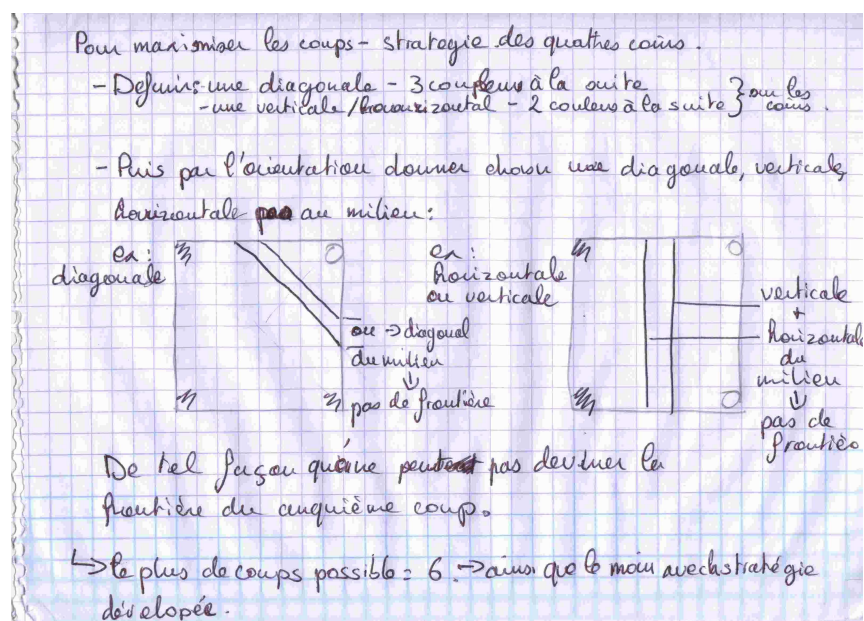 Pour maximiser les coups - strategie des quatres coins.
- Definir: - une diagonale - 3 couleurs à la suite
- une verticale / horizontal - 2 couleurs à la suite } sur les coins.
- Puis par l'orientation donner choisir une diagonale, verticale,
horizontale au milieu:
ex:
diagonale
ou → diagonal
du milieu
⇓
pas de frontière
ex:
horizontale
ou verticale
verticale
+
horizontale
du
milieu
⇓
pas de
frontière
De tel façon ne pas deviner la
frontière du cinquième coup.
↳ le plus de coups possible = 6. → ainsi que le moin avec la stratégie
dévelopée.